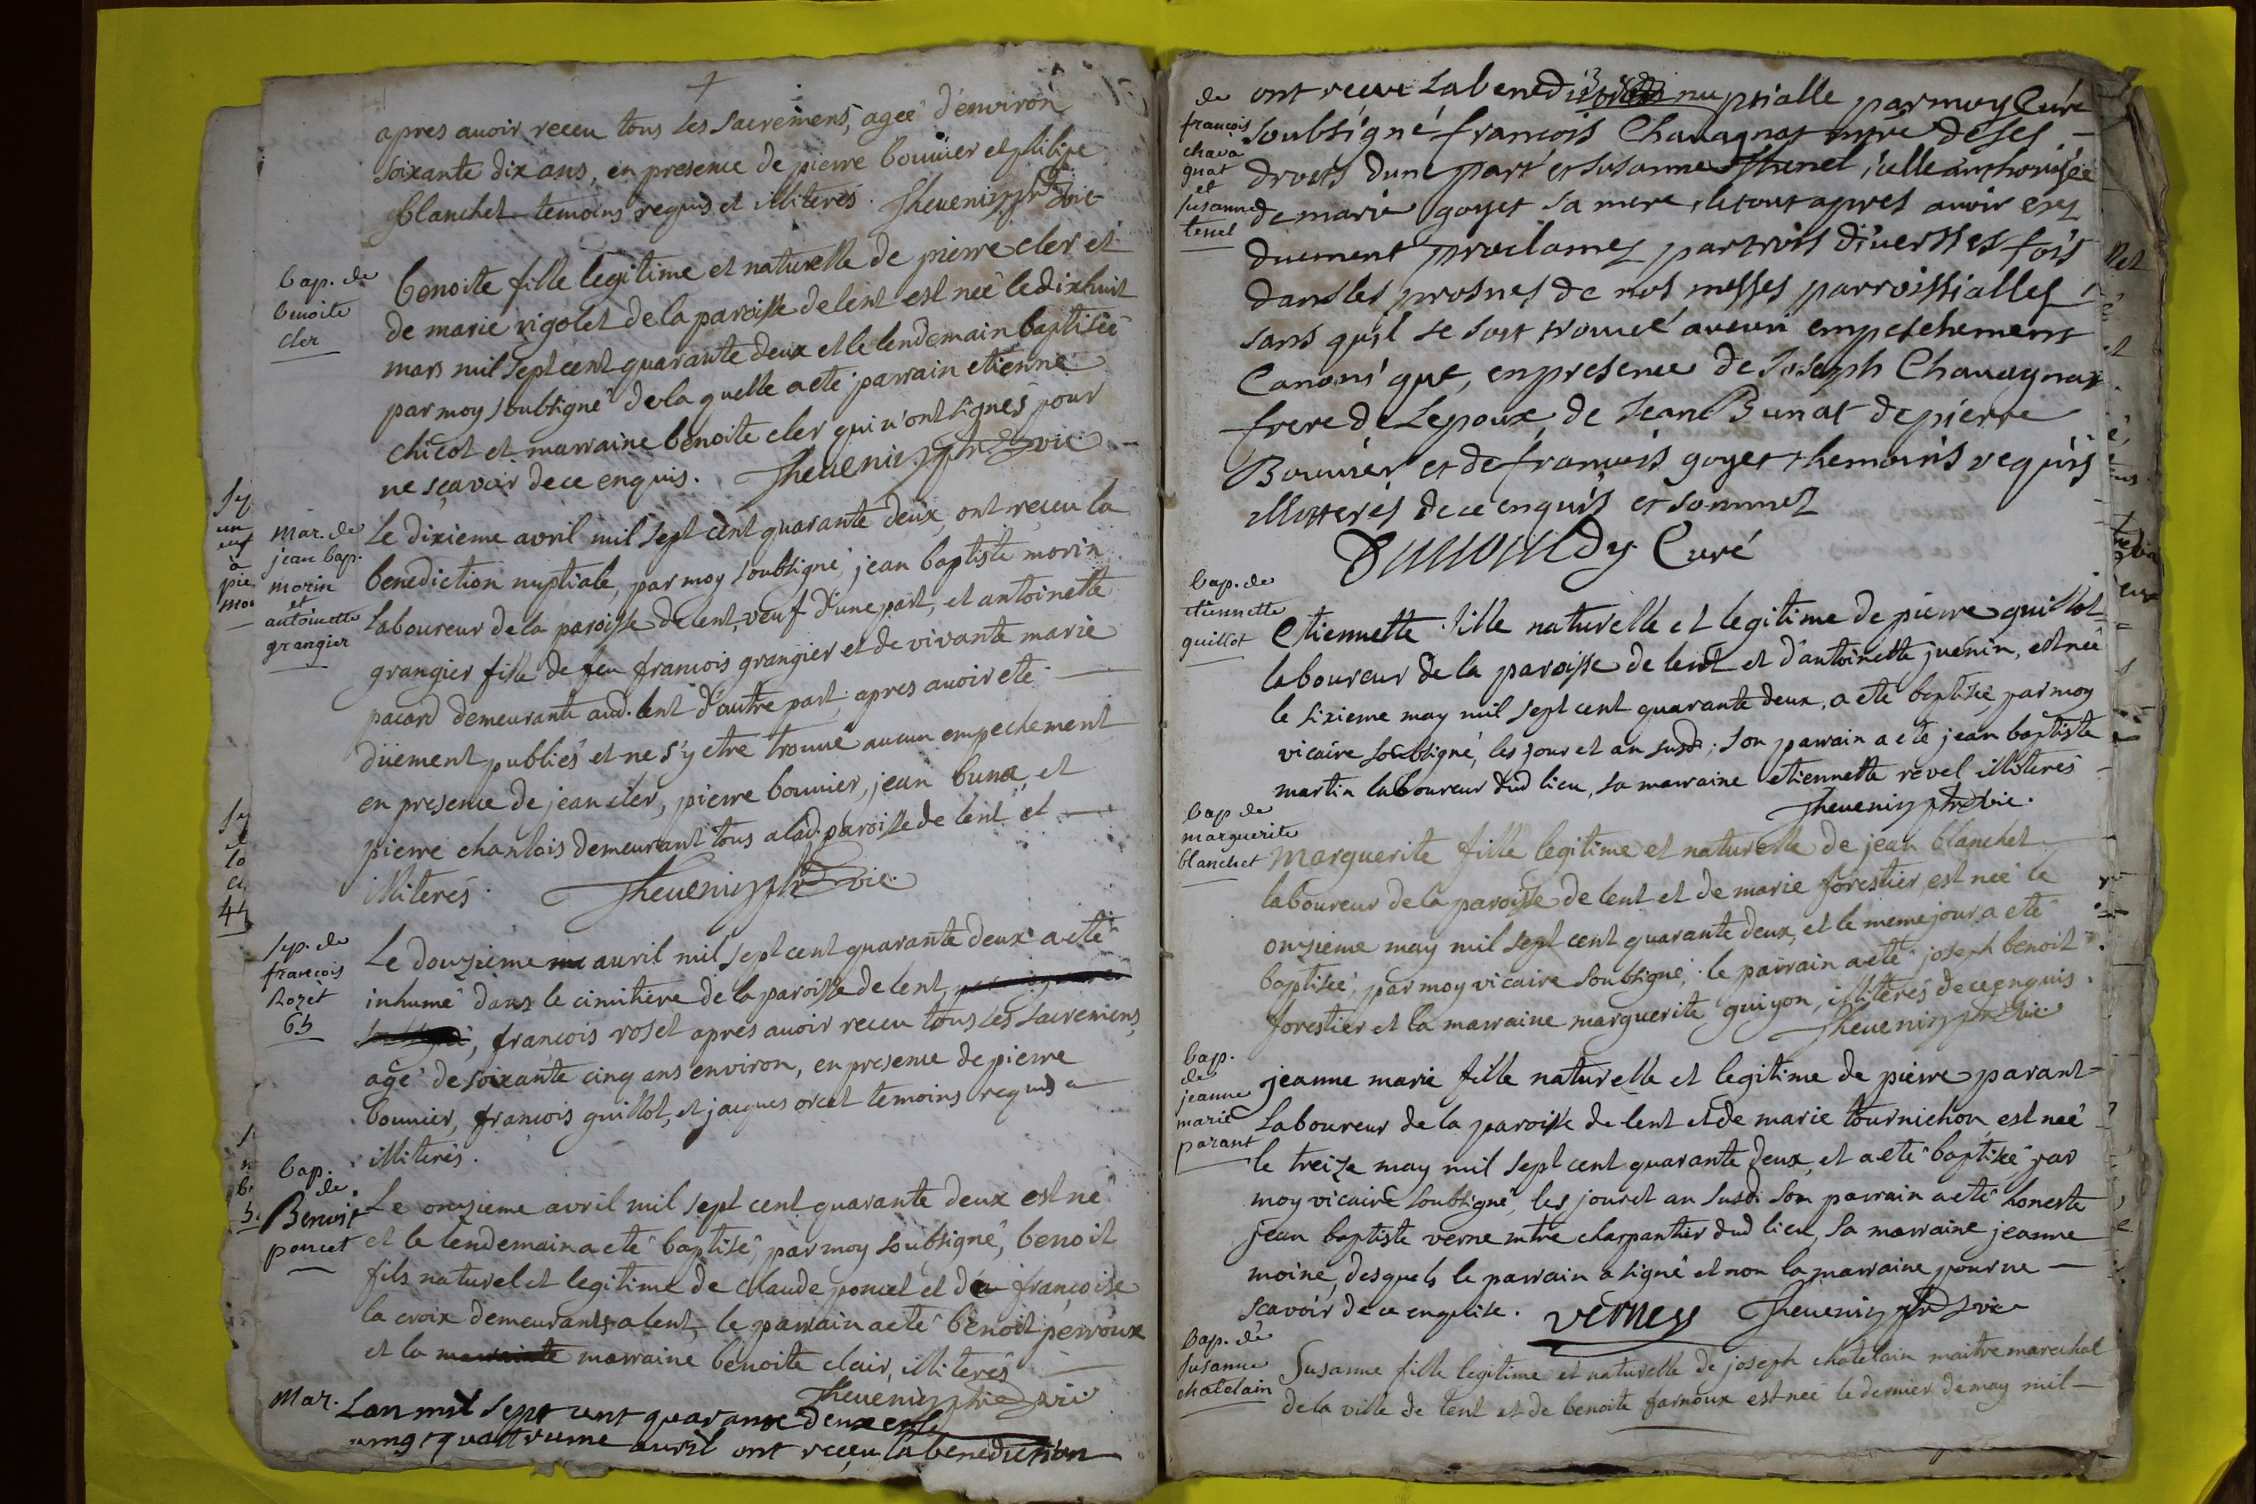 apres avoir receu tous les sacremens, agée d'environ
soixante dix ans, en presence de pierre bouvier et philipe
blanchet temoins requis et illiterés. Thevenin ptre vic
bap. de
benoite
cler
benoite fille legitime et naturelle de pierre cler et
de marie rigolet de la paroisse de lent est neé le dixhuit
mars mil sept cent quarante deux et le lendemain baptisée
par moy soubsigné de la quelle a eté parrain etienne
chicot et marraine benoite cler qui n'ont signés pour
ne sçavoir de ce enquis. Thevenin ptre vic
mar. de
jean bap.
morin
et
antoinette
grangier
Le dixieme avril mil sept cent quarante deux, ont receu la
benediction nuptiale, par moy soubsigné, jean baptiste morin
laboureur de la paroisse de lent, veuf d'une part, et antoinette
grangier fille de feu francois grangier et de vivante marie
pacard demeurante aud. lent d'autre part, apres avoir eté
düement publiés et ne s'y etre trouvé aucun empechement
en presence de jean cler, pierre bouvier, jean buna, et
pierre chanlois demeurant tous a lad. paroisse de lent et
illiterés. Thevenin ptre vic.
sep. de
françois
Rozet
65
Le douzieme avril mil sept cent quarante deux a eté
inhumé dans le cimitiere de la paroisse de lent,
, francois roset apres avoir receu tous les sacremens,
agé de soixante cinq ans environ, en presence de pierre
bouvier, francois guillot, et jacques orcet temoins requis
illiterés.
bap.
de
Benoit
poncet
Le onzieme avril mil sept cent quarante deux est né
et le lendemain a eté baptisé, par moy soubsigné, benoit
fils naturel et legitime de claude poncet et de françoise
la croix demeurants a lent, le parrain a eté benoit perroux
et la marraine benoite clair, illiterés
Thevenin ptre vic
mar.
Lan mil sept cent quarante deux et le
vingt quattrieme avril ont reçeu la benediction
de
francois
chava
gnat
et
susanne
tenel
ont receu la benediction nuptialle par moy Curé
soubsigné francois Chavagnat mtre de ses
droits dune part et susanne Thenet, icelle authorisée
de marie goyet sa mere, le tout apres avoir estez
duement proclamez par trois diversses fois
dans les prosnes de nos messes parroissialles
sans qu'il se soit trouvé aucun empeschement
Canonique, en presence de Joseph Chavagnat
frere de Lepoux, de Jean Bunat de pierre
Bouvier et de francois goyet themoins requis
illitterés de ce enquis et sommez
Dumoundy Curé
bap. de
etiennette
guillot
Etiennette fille naturelle et legitime de pierre guillot
laboureur de la paroisse de lent et d'antoinette juenin, est neé
le sixieme may mil sept cent quarante deux, a eté baptisée par moy
vicaire soubsigné, les jour et an susd.; son parrain a eté jean baptiste
martin laboureur dud lieu, sa marraine etiennette revel illiterés
Thevenin ptre vic.
bap de
marguerite
blanchet
marguerite fille legitime et naturelle de jean blanchet
laboureur de la paroisse de lent et de marie forestier, est neé le
onzieme may mil sept cent quarante deux, et le meme jour a eté
baptisée, par moy vicaire soubsigné; le parrain a eté joseph benoit
forestier et la marraine marguerite guiyon, illiterés de ce enquis.
Thevenin ptre vic
bap.
de
jeanne
marie
parant
jeanne marie fille naturelle et legitime de pierre parant
laboureur de la paroisse de lent et de marie tournichon est neé
le treize may mil sept cent quarante deux, et a eté baptisée par
moy vicaire soubsigné, les jour et an susd. son parrain a eté honeste
jean baptiste verne mtre charpantier dud lieu, sa marraine jeanne
moine, desquels le parrain a signé et non la marraine pour ne
scavoir de ce enquise. verney Thevenin ptre vic
bap. de
susanne
chatelain
Susanne fille legitime et naturelle de joseph chatelain maitre marechal
de la ville de lent et de benoite farnoux est neé le dernier de may mil